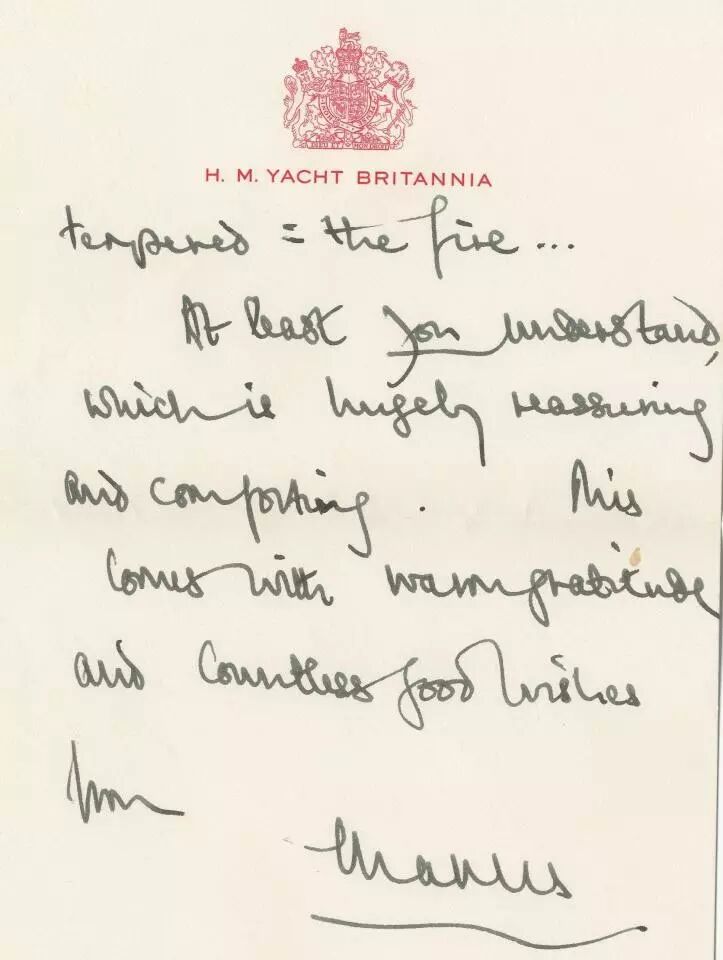 H. M. YACHT BRITANNIA
tempered = the fire ...
At least you understand,
which is hugely reassuring
and comforting. This
comes with warm gratitude
and countless good wishes
from
Charles